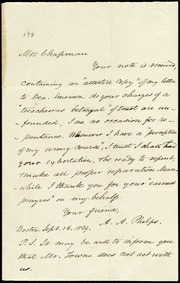 Mrs Chapman
Your note is received
containing an "attested copy" of my letter
to Dea. Emerson. As your charges of a
"treacherous betrayal" of trust are un-
founded, I see no occasion for re-
pentance. Whenever I have a "perception
of my wrong course," I trust I shall heed
your exhortation, to repent,
& make all proper reparation. Mean-
while I thank you for your "earnest
prayers" in my behalf.
Your friend,
A. A. Phelps.
Boston Sept. 16, 1839.
P.S. It may be well to inform you
that Mr. Towne does not act with
us.